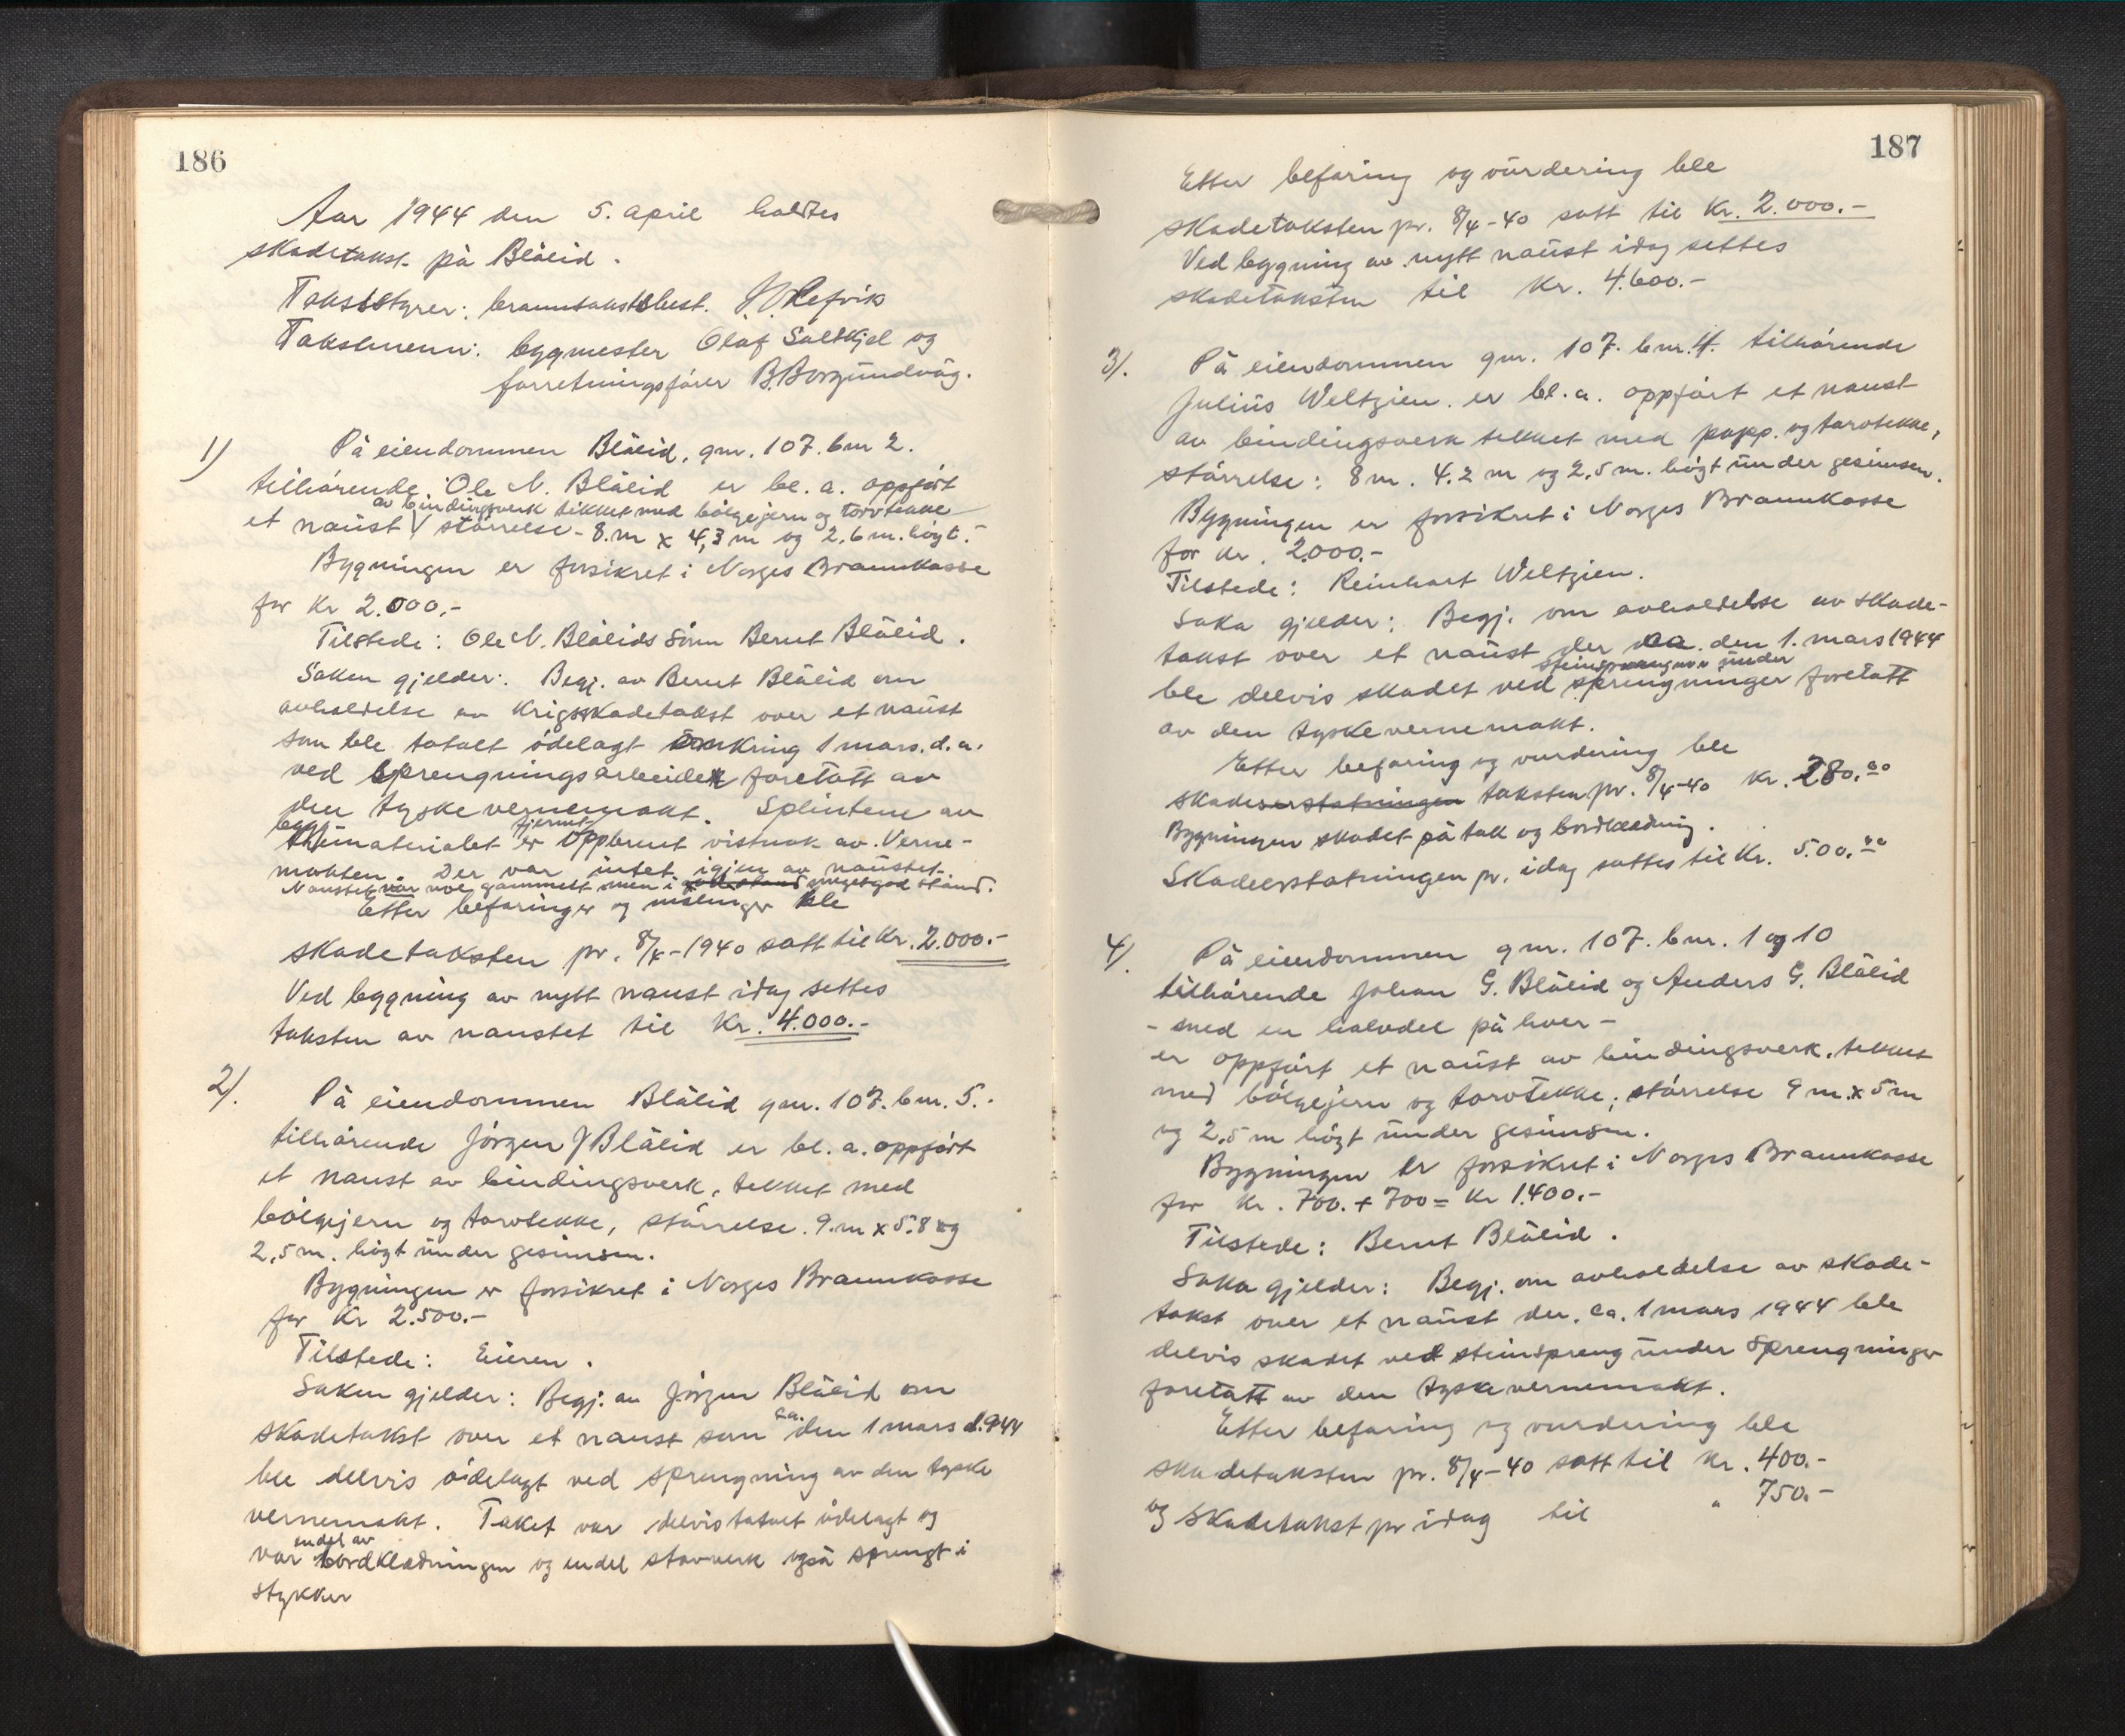 186
Aar 1944 den 5. april holdtes
skadetakst på Blålid.
Takststyrer: branntakstbest. J. Refvik
Takstmenn: byggmester Olaf Saltkjel og
forretningsfører B. Borgundvåg.
1) På eiendommen Blålid, gnr. 107. bnr 2.
tilhørende Ole N. Blålid er bl. a. oppført
av bindingsverk tekket med bølgejern og torvtekke
et naust størrelse - 8. m x 4,3 m og 2.6 m. høyt.-
Bygningen er forsikret i Norges Brannkasse
for Kr 2.000.-
Tilstede: Ole N. Blålids sønn Bernt Blålid.
Saken gjelder: Begj. av Bernt Blålid om
avholdelse av krigsskadetakst over et naust
som ble totalt ødelagt omkring 1 mars. d.a.
ved sprengningsarbeider foretatt av
den tyske vernemakt. Splintene av
bygg fjernet
materialet er oppbrent vistnok av Verne-
makten. Der var intet igjen av naustet.
Naustet var noe gammelt men i meget god stand.
Etter befaringer og målinger ble
skadetaksten pr. 8/4-1940 satt til Kr. 2.000.-
Ved bygging av nytt naust idag settes
taksten av naustet til Kr. 4.000.-
2). På eiendommen Blålid gnr. 107. bnr. 5.
tilhørende Jørgen J Blålid er bl. a. oppført
et naust av bindingsverk, tekket med
bølgejern og torvtekke, størrelse. 9. m x 5.8 og
2,5 m. høgt under gesimsen.
Bygningen er forsikret i Norges Brannkasse
for Kr 2.500.-
Tilstede: Eieren.
Saken gjelder: Begj: av Jørgen Blålid om
ca.
skadetakst over et naust som den 1 mars 1944
ble delvis ødelagt ved sprengning av den tyske
vernemakt. Taket var delvis totalt ødelagt og
endel av
var bordkledningen og endel stavverk også sprengt i
stykker
187
Etter befaring og vurdering ble
skadetaksten pr. 8/4-40 satt til Kr. 2.000.-
Ved bygning av nytt naust idag settes
skadetaksten til Kr. 4.600.-
3). På eiendommen gnr. 107. bnr. 4. tilhørende
Julius Weltzien er bl. a. oppført et naust
av bindingsverk tekket med papp. og torvtekke,
størrelse: 8 m. 4.2 m og 2,5 m. høgt under gesimsen.
Bygningen er forsikret i Norges Brannkasse
for kr. 2.000.-
Tilstede: Reinhart Weltzien.
Saka gjelder: Begj. om avholdelse av skade-
takst over et naust der ca. den 1. mars 1944
steinsprengn under
ble delvis skadet ved sprengninger foretatt
av den tyske vernemakt.
Etter befaring og vurdering ble
skadeserstatningen taksten pr. 8/4-40 kr. 280.00
Bygningen skadet på tak og bordkledning.
Skadeerstatningen pr. idag sattes til Kr. 500.00
4). På eiendommen gnr. 107. bnr. 1 og 10
tilhørende Johan G. Blålid og Anders G. Blålid
- med en halvdel på hver -
er oppført et naust av bindingsverk, tekket
med bølgejern og torvtekke; størrelse 9 m. x 5 m
og 2,5 m høgt under gesimsen.
Bygningen er forsikret i Norges Brannkasse
for Kr. 700. + 700 = Kr 1.400.-
Tilstede: Bernt Blålid.
Saka gjelder: Begj. om avholdelse av skade-
takst over et naust der. ca. 1 mars 1944 ble
delvis skadet ved steinspreng under sprengninger
foretatt av den tyske vernemakt.
Etter befaring og vurdering ble
skadetaksten pr. 8/4-40 satt til Kr. 400.-
og skadetakst pr idag til " 750.-